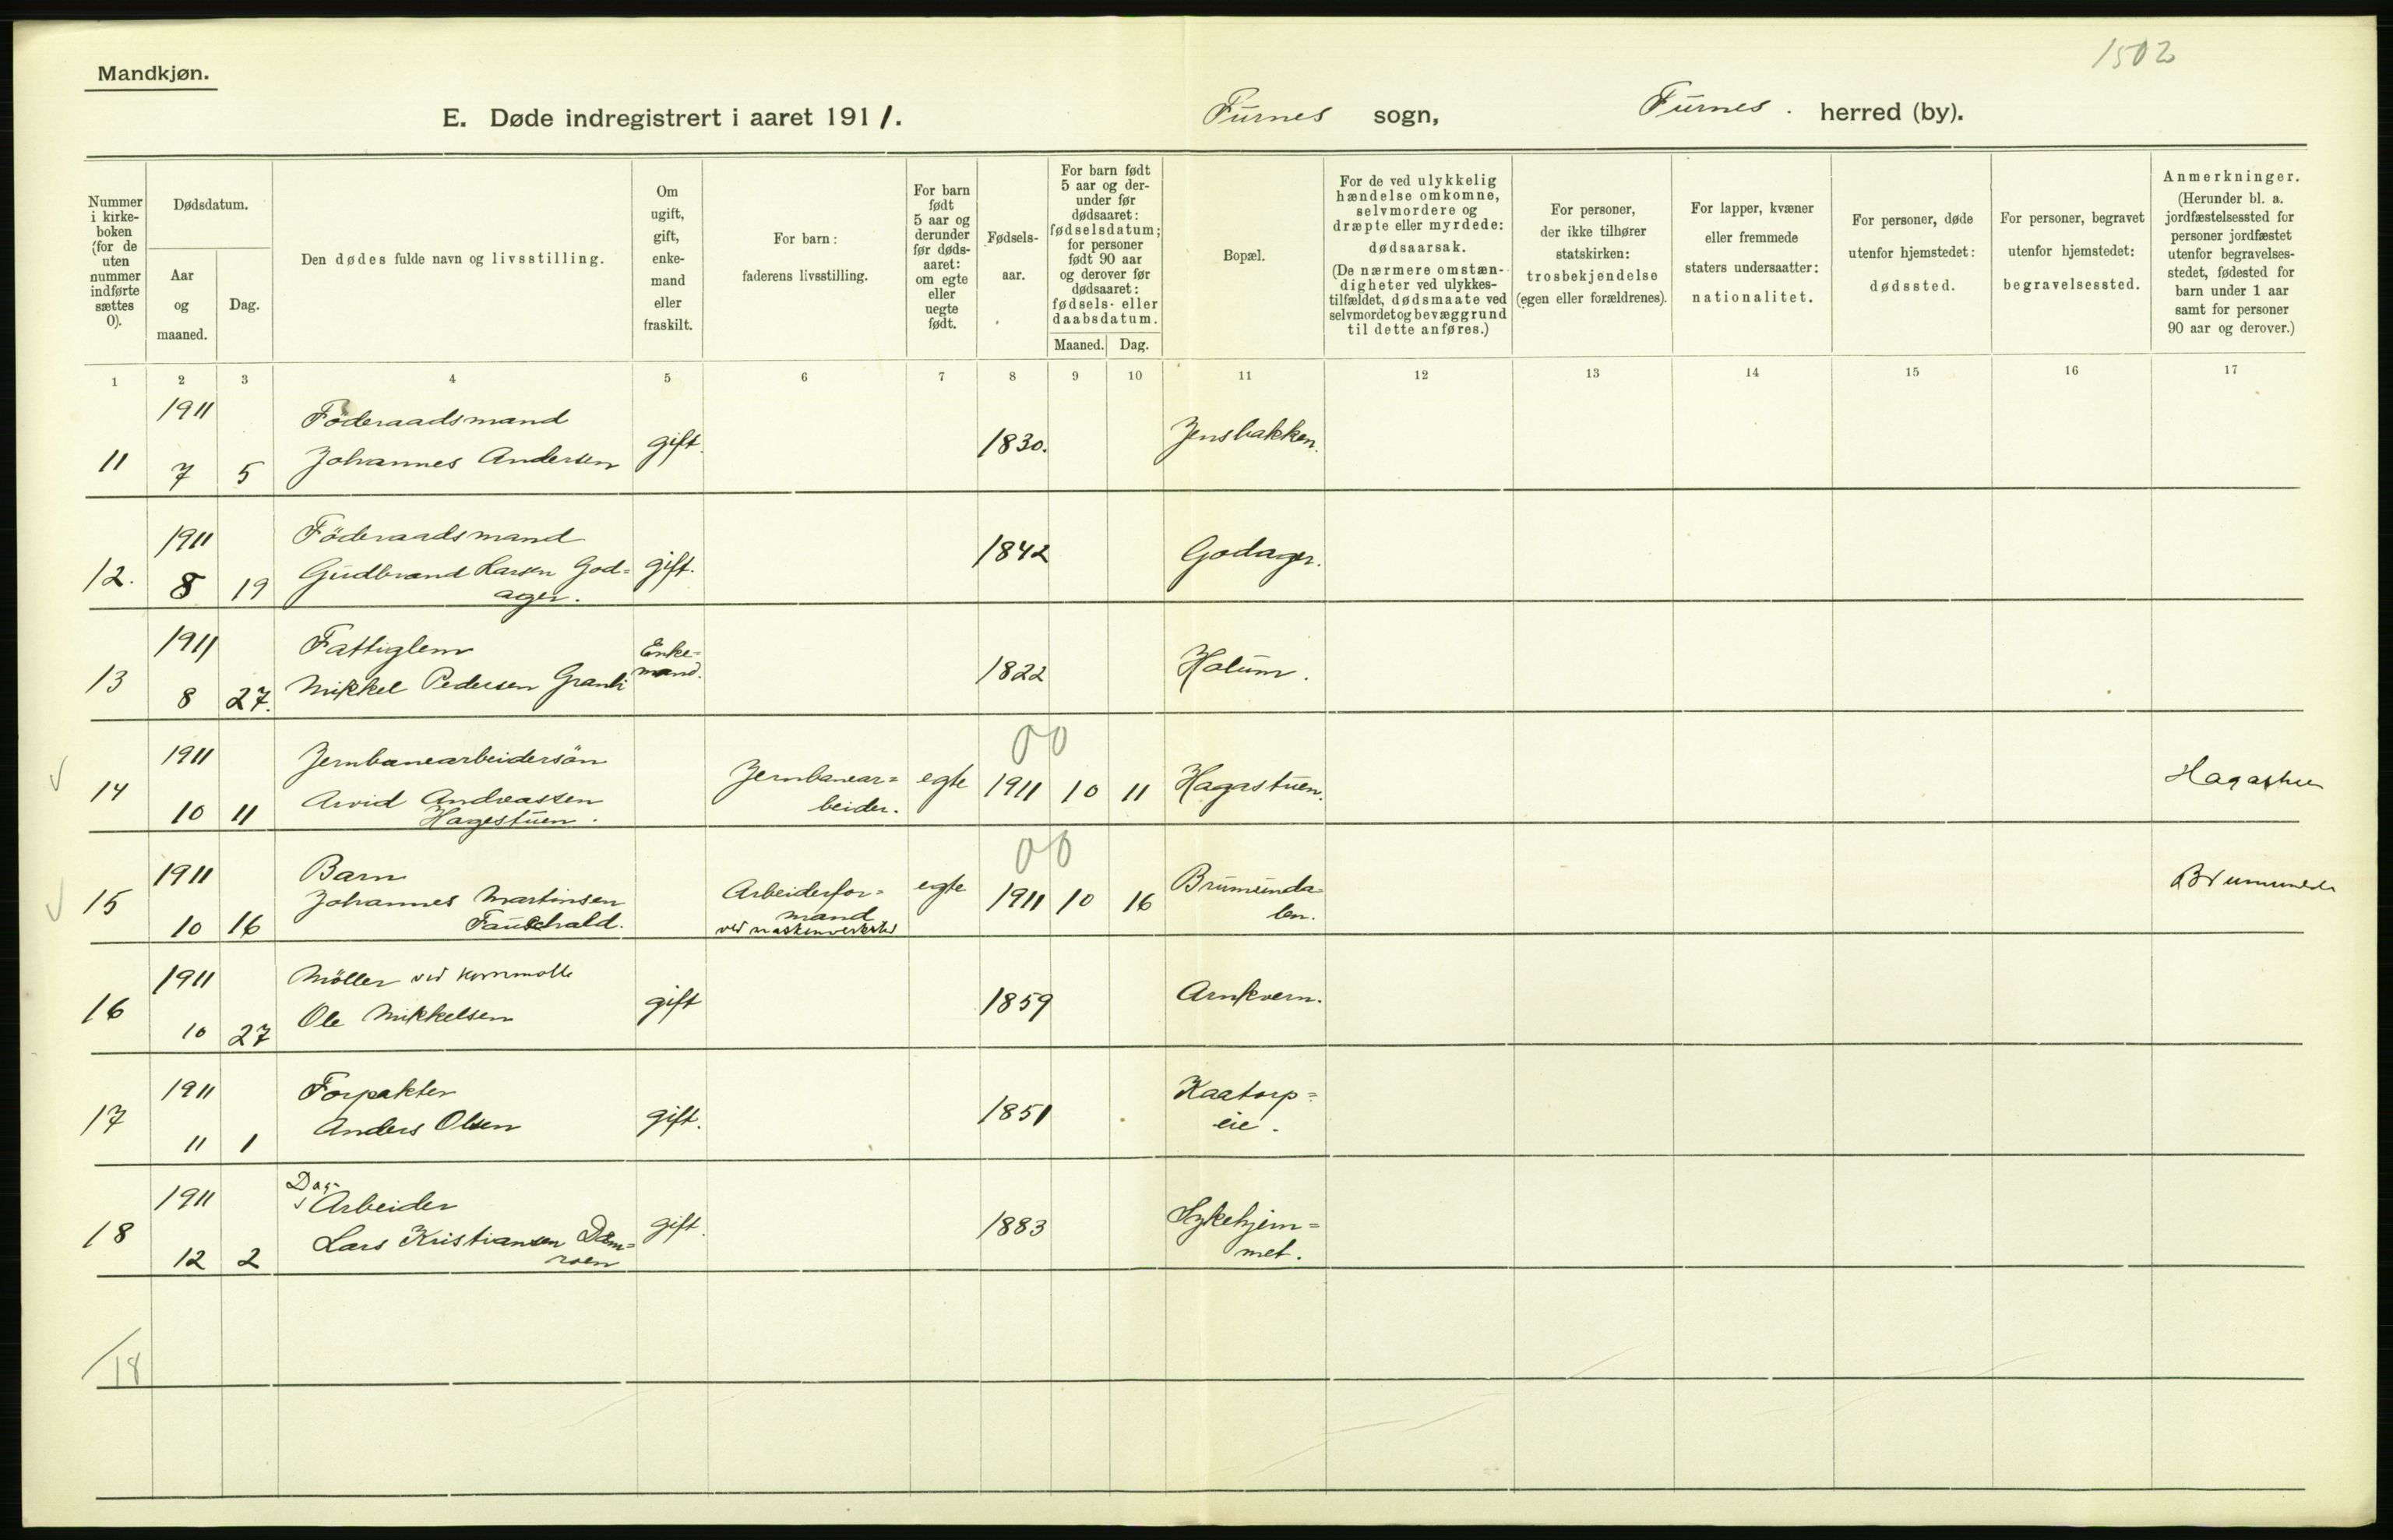 1502
Mandkjøn.
E. Døde indregistrert i aaret 1911.
Furnes sogn,
Furnes. herred (by).
Nummer i kirke-boken (for de uten nummer indførte sættes 0).
Dødsdatum.
Aar og maaned.
Dag.
Den dødes fulde navn og livsstilling.
Om ugift, gift, enke-mand eller fraskilt.
For barn: faderens livsstilling.
For barn født 5 aar og derunder før døds-aaret: om egte eller uegte født.
Fødsels-aar.
For barn født 5 aar og der-under før dødsaaret: fødselsdatum; for personer født 90 aar og derover før dødsaaret: fødsels- eller daabsdatum.
Maaned.
Dag.
Bopæl.
For de ved ulykkelig hændelse omkomne, selvmordere og dræpte eller myrdede: dødsaarsak. (De nærmere omstæn-digheter ved ulykkes-tilfældet, dødsmaate ved selvmordet og bevæggrund til dette anføres.)
For personer, der ikke tilhører statskirken: trosbekjendelse (egen eller forældrenes).
For lapper, kvæner eller fremmede staters undersaatter: nationalitet.
For personer, døde utenfor hjemstedet: dødssted.
For personer, begravet utenfor hjemstedet: begravelsessted.
Anmerkninger. (Herunder bl. a. jordfæstelsessted for personer jordfæstet utenfor begravelses-stedet, fødested for barn under 1 aar samt for personer 90 aar og derover.)
1 2 3 4 5 6 7 8 9 10 11 12 13 14 15 16 17
1911 Föderaadsmand
11 7 5 Johannes Andersen gift. 1830. Jensbakken.
1911 Föderaadsmand
12. 8 19 Gudbrand Larsen God= gift. 1842 Godager.
ager.
1911 Fattiglem Enke=
13 8 27. Mikkel Pedersen Granli mand. 1822 Holum.
00
1911 Jernbanearbeidersön Jernbanear= egte 1911 10 11 Hagastuen. Hagastuen
14 10 11 Arvid Andreassen beider.
Hagestuen.
00
1911 Barn
15 10 16 Johannes Martinsen Arbeiderfor= egte 1911 10 16 Brumunda=
Fauchald. mand len.
ved
1911 Möller ved kornmölle
16 10 27 Ole Mikkelsen gift 1859 Arnkvern.
1911 Forpakter Kaatorp=
17 11 1 Anders Olsen gift. 1851 eie.
Dag-
1911 Arbeider Sykehjem=
18 12 2 Lars Kristiansen Dam= gift. 1883 met.
roen
18